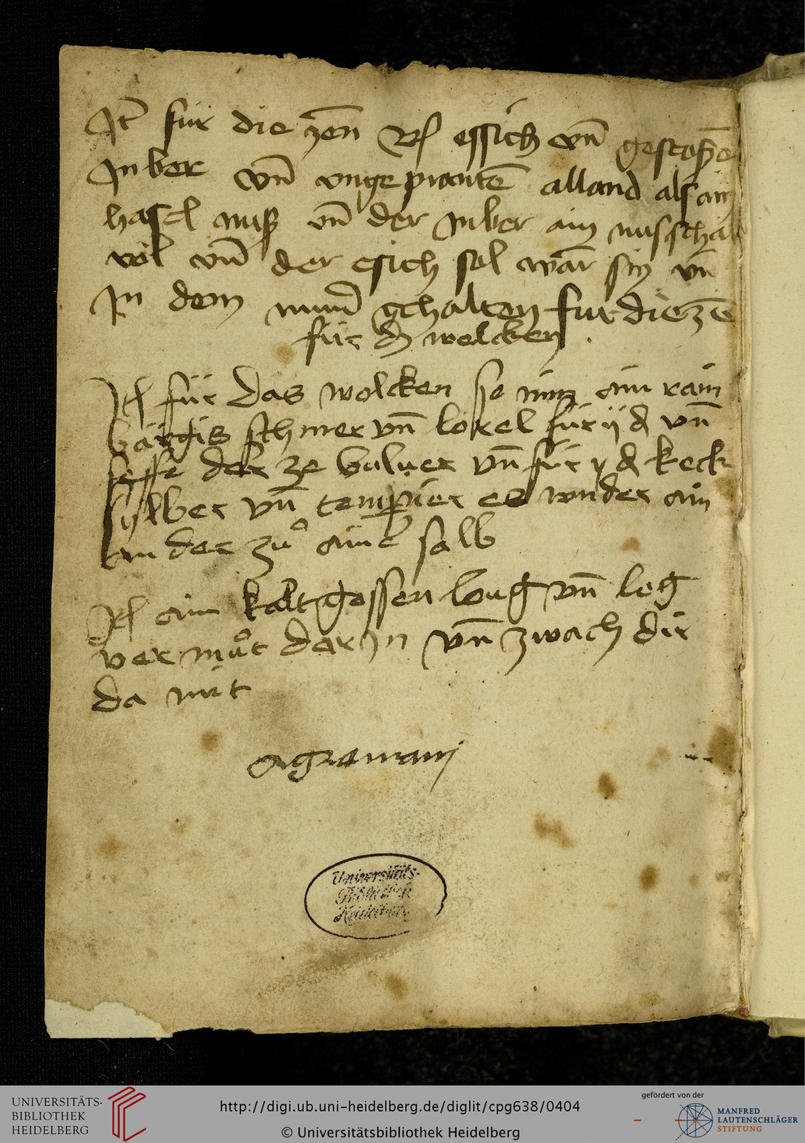 It̄ für die zen Rſ essich vn̄ gestosse
Inber vn̄ vngeprantē alland als ain
hasel nuß vn̄ der Inber ain nusschal
vol vn̄ der esich sol warm sin vn̄
In dem mund gehalten fur die zē
für dz welcken
It für das wolcken so nim ain rain
bärgis schmer vn̄ lorel für ij d vn̄
vn̄ für ij d keck
sylber vn̄ tempier es vnder ain
ander zu ainer salb
It ain kalt gossen lǒug vn̄ leg
wermut dar In vn̄ zwach dir
da mit
Universitäts-
Bibliothek
Heidelberg
UNIVERSITÄTS-
BIBLIOTHEK
HEIDELBERG
http://digi.ub.uni-heidelberg.de/diglit/cpg638/0404
© Universitätsbibliothek Heidelberg
gefördert von der
MANFRED
LAUTENSCHLÄGER
STIFTUNG